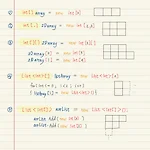 ① int[] array = new int[4]
② int[,] 2Array = new int[2,4]
③ int[][] 2Darray = new int[2][]
2Darray[0] = new int[4]
2Darray[1] = new int[3]
④ List<int>[] listArray = new List<int>[2]
for (int i=0; i<2; i++)
listArray[i] = new List<int>()
⑤ List<int[]> arrList = new List<int[]>()
arrList.Add(new int[4])
arrList.Add(new int[2])